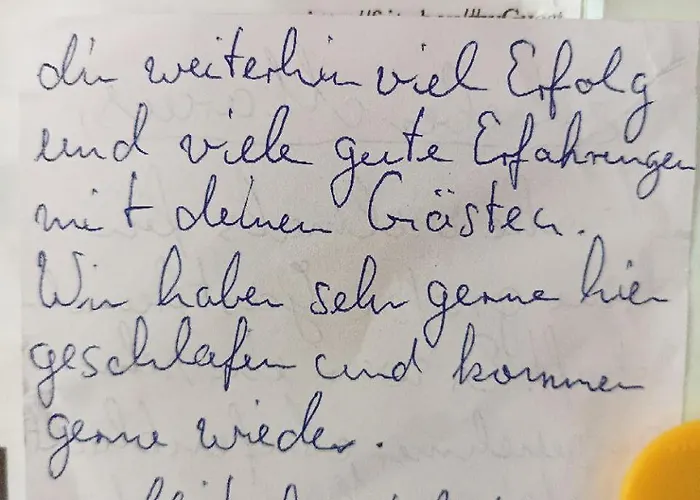 dir weiterhin viel Erfolg
und viele gute Erfahrungen
mit deinen Gästen.
Wir haben sehr gerne hier
geschlafen und kommen
gerne wieder.